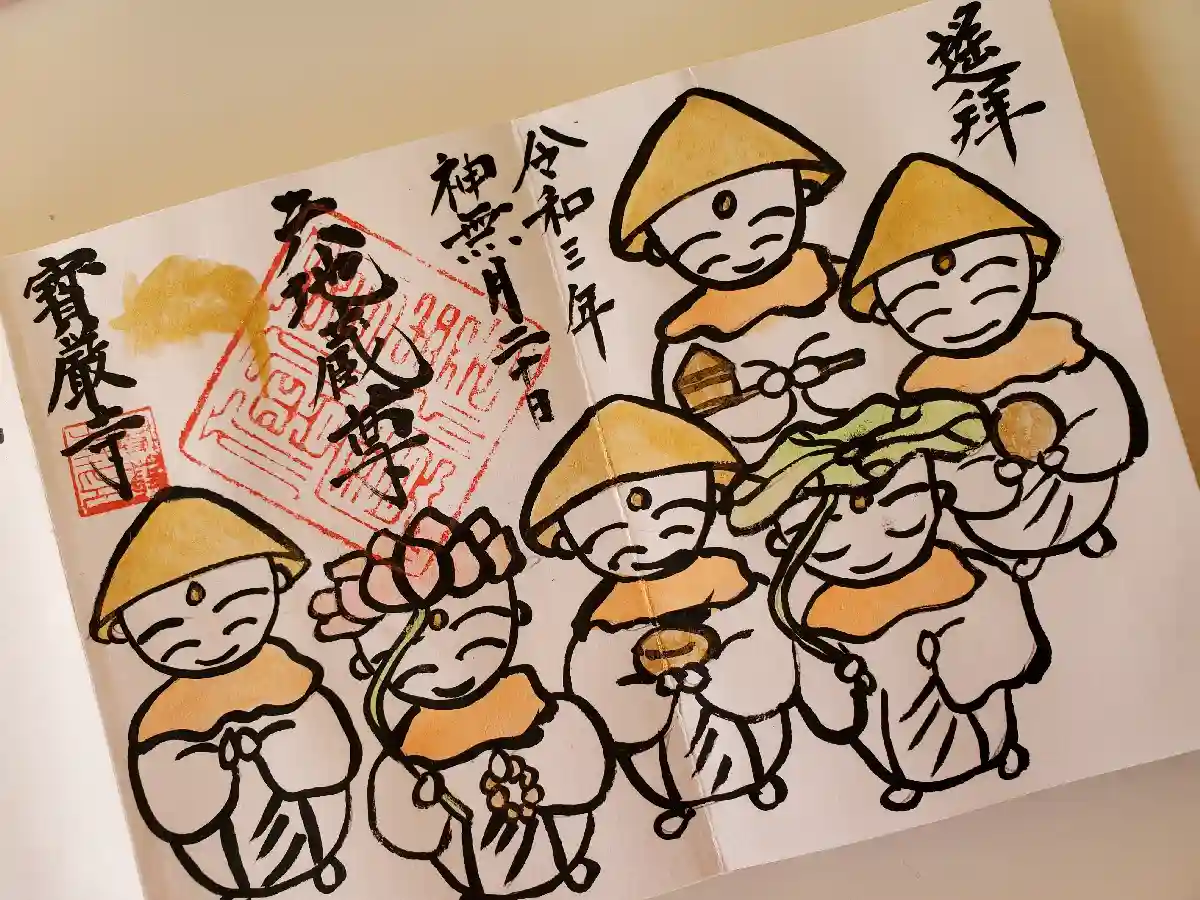 遙拝
令和三年
神無月二十日
六地蔵尊
寶厳寺